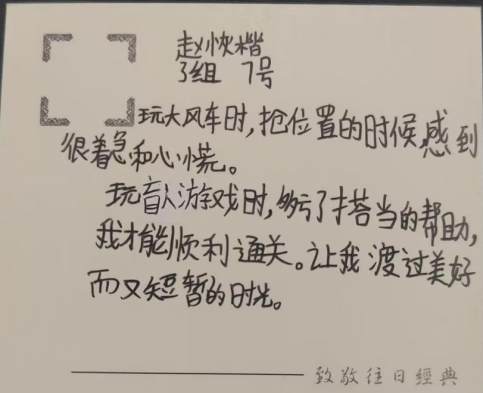 赵恢楷
3组 7号
玩大风车时,抢位置的时候,感到
很着急和心慌。
玩盲人游戏时,多亏了搭当的帮助,
我才能顺利通关。让我渡过美好
而又短暂的时光。
致敬往日經典